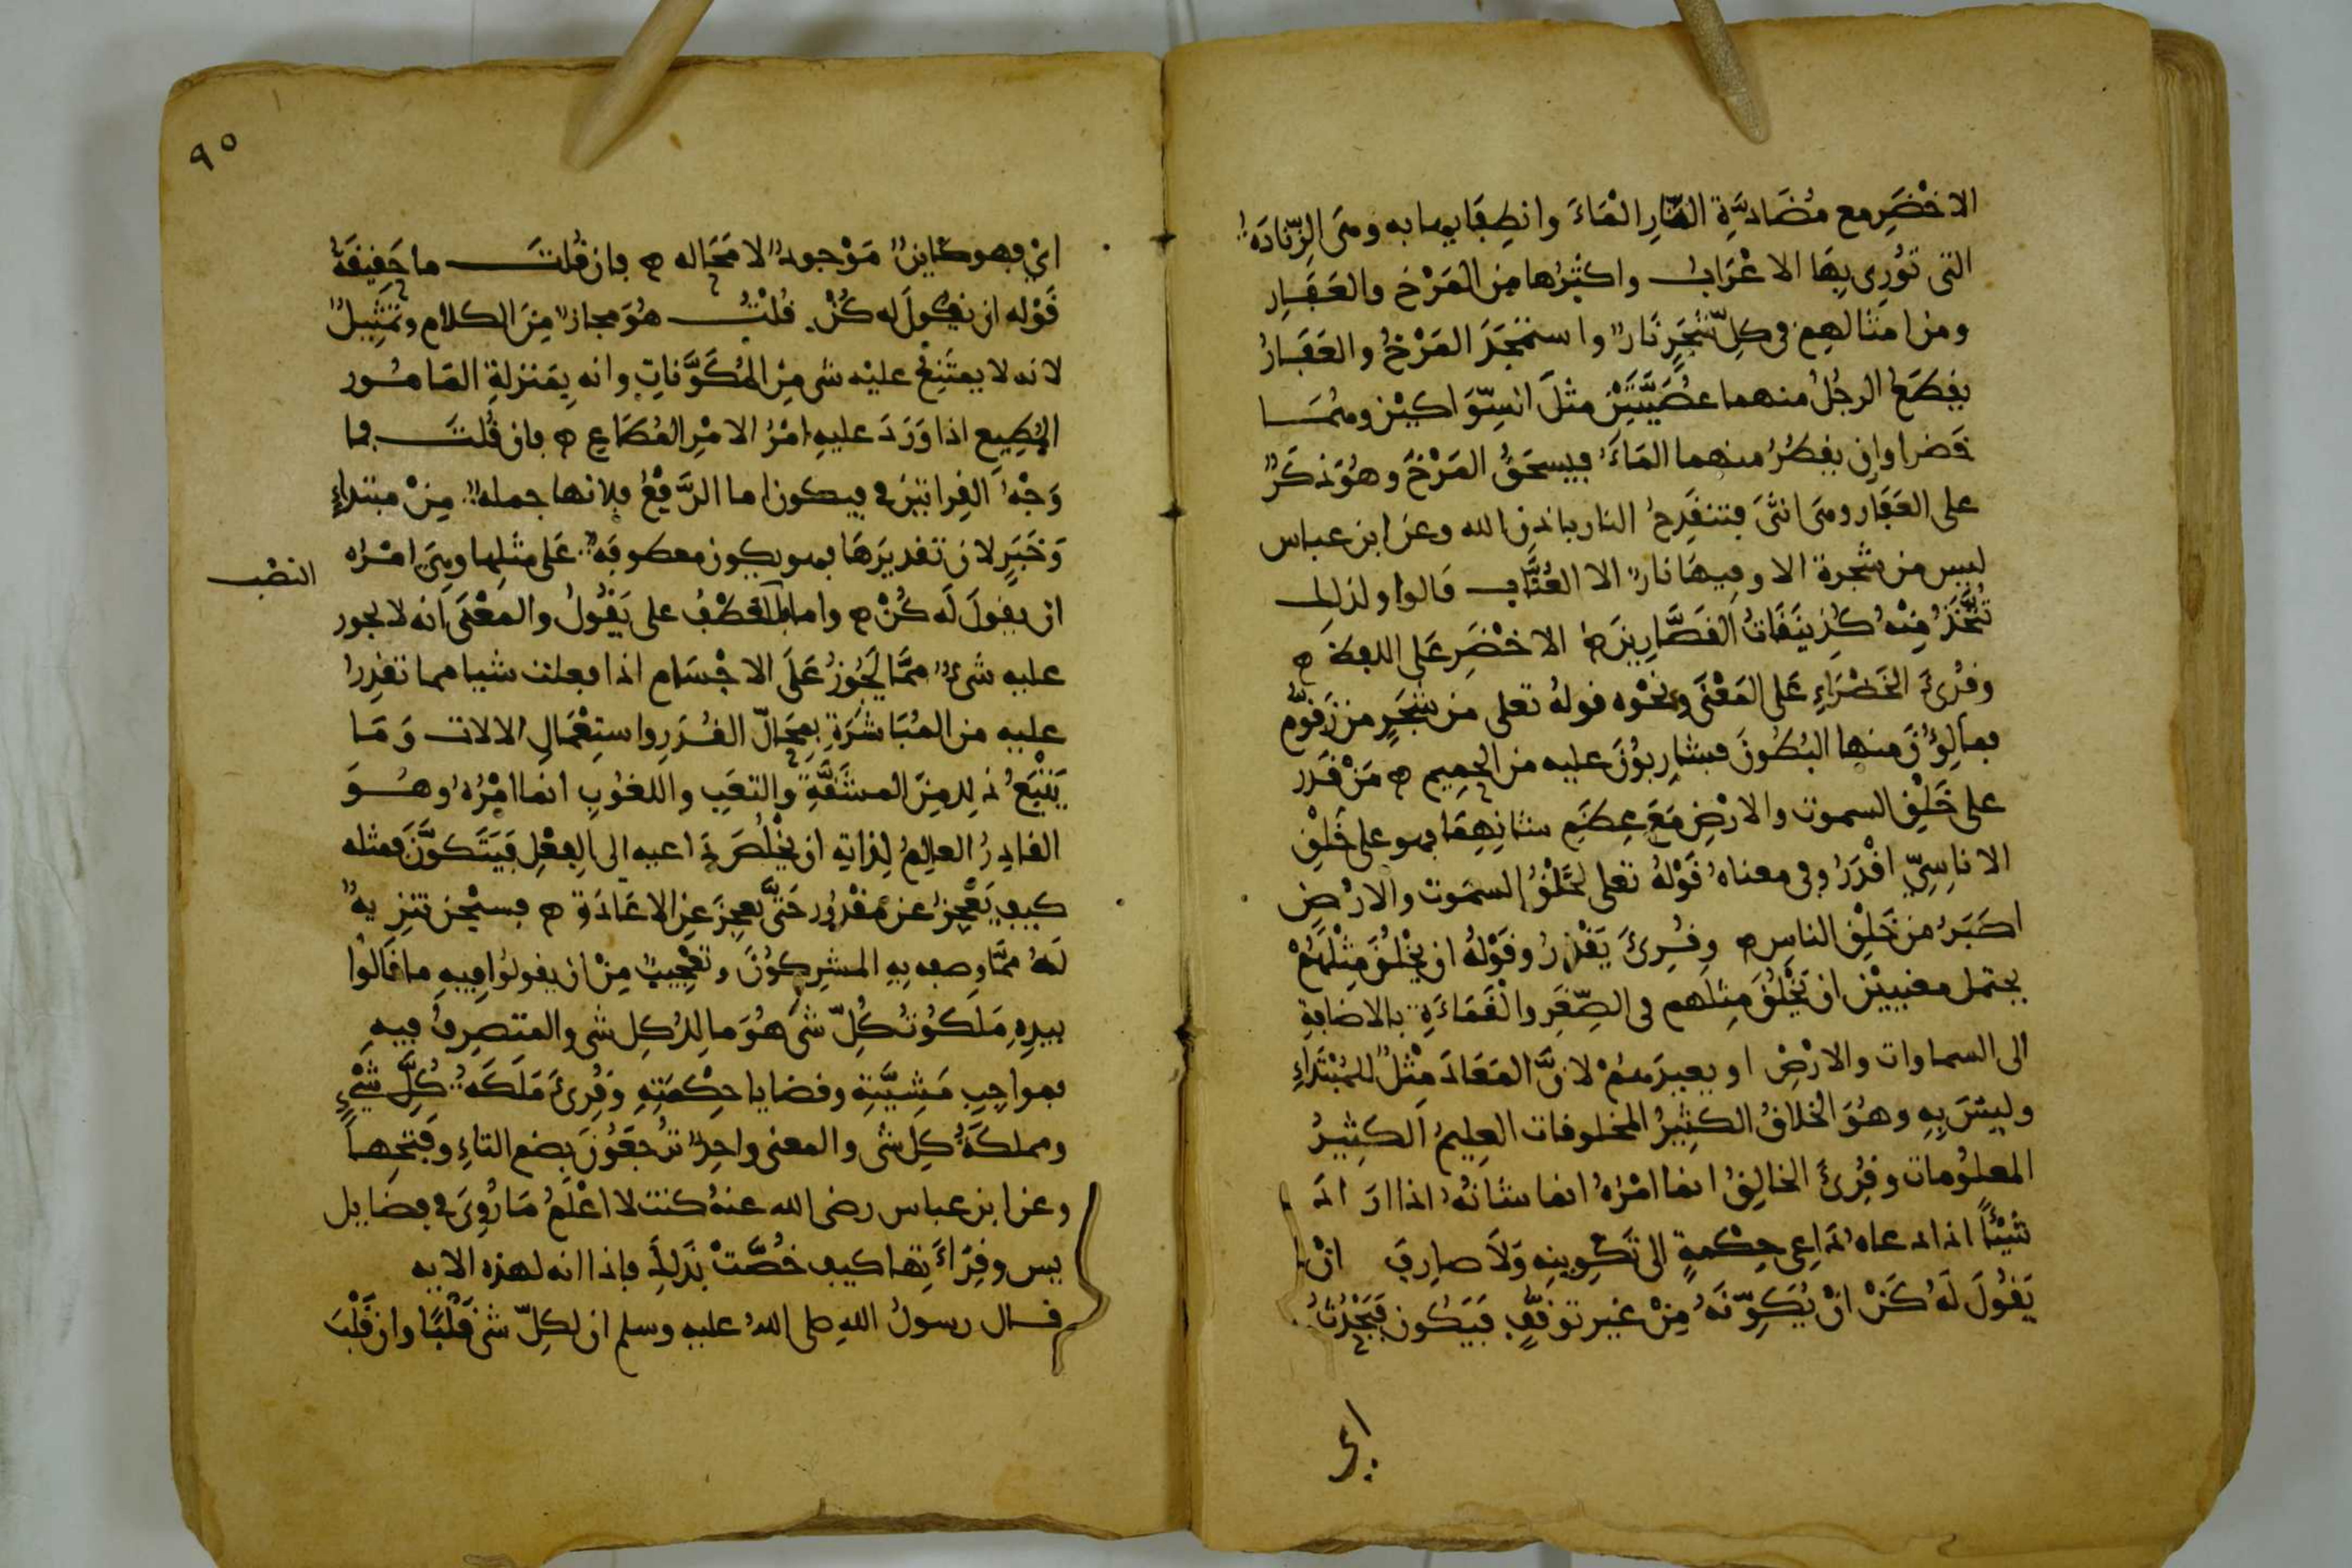 الاخْضَرِ مع مُضَادَّةِ النَّارِ المَاءَ وانطِفَايها به وهى الزِّنَادَةُ
التى تُوْرِى بِهَا الاعْرَابُ واكثَرُها مِنَ المَرْخِ والعَفَارِ
ومن امثالهِم فى كلِّ شَجَرٍ نَارٌ واستَمْجَدَ المَرْخُ والعَفَارُ
يقطَعُ الرجُلُ منهما عُصَيَّتَيْنِ مثلَ السِّوَاكَيْنِ وهُمَا
خَضراوانِ يقطُرُ منهما المَاءُ فيسحَقُ المَرْخَ وهُوَ ذكَرٌ
على العَفَارِ وهى انثَى فتنقَدِحُ النار باذنِ الله وعن ابن عباس
ليس من شجرة الا وفِيهَا نارٌ الا العُنَّاب قالوا ولذلك
تُتَّخَذُ مِنْهُ كُذِينَقَاتُ القَصَّارِينَ الاخْضَرِ عَلى اللفظ
وقُرِئَ الخَضْرَاءِ عَلى المَعْنَى ونَحْوُه قولهُ تعلى من شَجَرٍ من زَقُّومٍ
فمالِؤُنَ منها البُطُونَ فشارِبُوْنَ عليه من الحمِيم مَنْ قَدَر
على خَلْقِ السموت والارْضِ مَعَ عِظَمِ شانِهِمَا فهو على خَلْقِ
الاناسِىِّ اقْدَرُ وفى معناهُ قَوْلهُ تعلى لخَلْقُ السمَوت والارْضِ
اكبَرُ من خَلْقِ الناسِ وقُرِئَ يَقْدِرُ وقَوْلهُ ان يَخْلُقَ مِثْلَهُمْ
يحتمل معنيَيْنِ ان يَخْلُقَ مِثلَهم فى الصِّغَرِ والْقَمَاءَةِ بالاضافةِ
الى السماوات والارْضِ او يعيدَهُمْ لانَّ المعَادَ مِثْلٌ للمُبْتَدَاءِ
وليسَ بِهِ وهُوَ الخلاقُ الكثِيرُ المخلوقات العلِيمُ الكثِيرُ
المعلُومات وقُرِئَ الخالِقُ انما امْرُهُ انما شانُهُ اذا ارَادَ
شَيْئًا اذا دعاه دَاعِى حِكْمةٍ الى تَكْوِينِه وَلَا صارِفَ انْ
يَقُولَ لَهُ كُنْ انْ يُكَوِّنَهُ مِنْ غيرِ توقُّفٍ فيَكُون فيَحْدُثُ
اى
٩٥
اىْ فهو كاينٌ مَوْجودٌ لا محَاله فان قُلتَ ما حَقِيقَةُ
قَوْله ان يقُولَ له كُنْ قُلْتُ هُوَ مجازٌ مِنَ الكلام وتَمْثِيلٌ
لانه لا يمتَنِعُ عليْه شى مِنَ المُكَوَّنَاتِ وانه بِمَنزلةِ المَامُور
المُطِيع اذا وَرَدَ عليهِ امْرُ الامْرِ المُطَاعِ فان قُلتَ فما
وَجْهُ القِراتَيْنِ فى فيكون اما الرَّفْعُ فلانها جملهٌ مِنْ مبتداءٍ
وَخَبَرٍ لانَ تقديرَهَا فهو يكون معطوفَهٌ عَلى مثلِها وهِىَ امْرُه
النصْب
ان يقولَ لَه كُنْ واما فللعَطْفِ على يَقُولُ والمَعْنَى انه لا يجوز
عليه شىءٌ ممَّا يَجُوزُ عَلَى الاجْسَام اذا فعلت شيا مما تقدِرُ
عليه من المُبَاشرَةِ بمحَالِّ القُدَرِ واستِعْمَالِ الالات وَمَا
يَتْبَعُ ذلك مِنَ المشَقَّةِ والتعَبِ واللغوُبِ انما امْرُهُ وهُوَ
القادِرُ العالِمُ لِذاتِه ان يخْلُصَ دَاعيه الى الفِعْلِ فيَتَكوَّنَ فمثله
كيف يَعْجِزُ عن مَقْدُور حَتَّى يعجِزَ عن الاعَادَة فسبْحٰن تنزِيهٌ
لَهُ ممَّا وصفه بِهِ المشركوُنَ وتعْجِيبٌ مِنْ ان يقولوُا فيهِ ما قَالوُا
بيدِهِ مَلَكُوتُ كُلِّ شىْ هُوَ مالِكُ كل شى والمتصرِفُ فيهِ
بمواجِبِ مَشِيَّتِهِ وقضايا حِكْمَتِهِ وقُرِئَ مَلَكَةُ كُلِّ شَيْءٍ
ومملكَةُ كل شى والمعنى واحِدٌ تُرْجعُوْنَ بضم التاءِ وفتحِها
وعن ابن عباس رضى الله عنهُ كنت لا اعْلَمُ مَا رُوِىَ فى فضَايل
يس وقِرَاءَتِها كيف خُصَّتْ بذلِكَ فاذا انه لهذه الايه
قال رسولُ اللهِ صلى اللهُ عليه وسلم ان لكلِّ شىْ قَلْبًا وان قَلْبَ